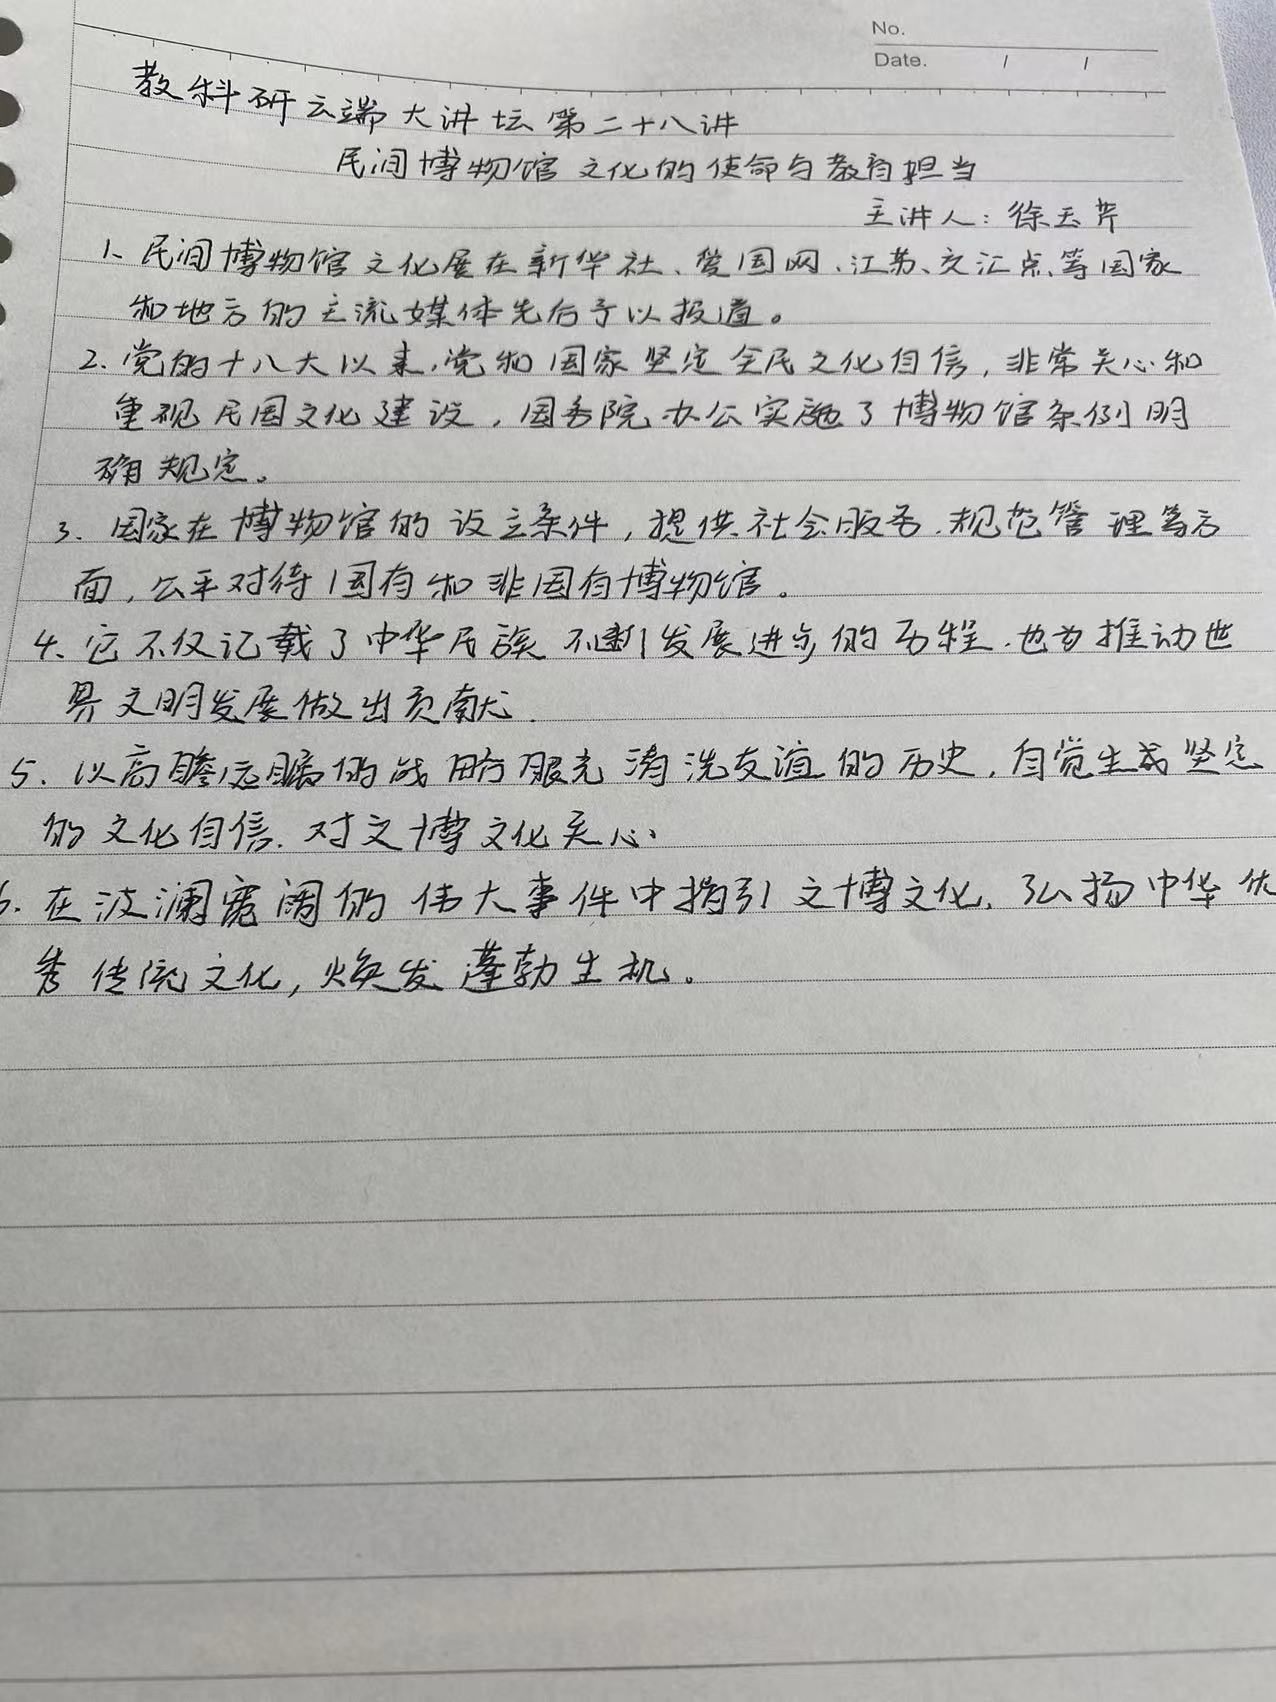 No.
Date. / /
教科研云端大讲坛第二十八讲
民间博物馆文化的使命与教育担当
主讲人：徐玉芹
1、民间博物馆文化展在新华社、爱国网、江苏、交汇点、等国家
和地方的主流媒体先后予以报道。
2、党的十八大以来,党和国家坚定全民文化自信,非常关心和
重视民国文化建设,国务院办公实施了博物馆条例明
确规定。
3、国家在博物馆的设立条件,提供社会服务、规范管理等方
面,公平对待国有和非国有博物馆。
4、它不仅记载了中华民族不断发展进步的历程,也为推动世
界文明发展做出贡献.
5、以高瞻远瞩的战略眼光 清洗友谊的历史,自觉生成坚定
的文化自信.对文博文化关心、
6、在波澜宽阔的伟大事件中指引文博文化.弘扬中华优
秀传统文化,焕发蓬勃生机。